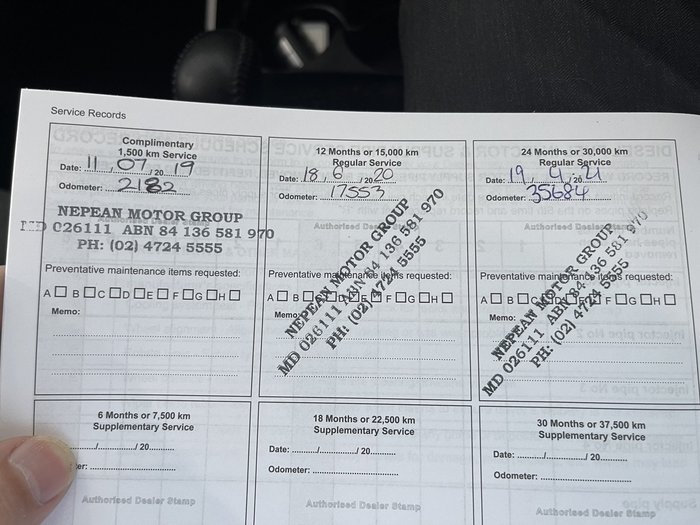 Service Records
Complimentary
1,500 km Service
Date: 11, 07, 20 19
Odometer: 2182
NEPEAN MOTOR GROUP
MD 026111 ABN 84 136 581 970
PH: (02) 4724 5555
Preventative maintenance items requested:
A B C D E F G H
Memo:
12 Months or 15,000 km
Regular Service
Date: 18, 6, 20 20
Odometer: 17553
Authorised Dealer
NEPEAN MOTOR GROUP
MD 026111 ABN 84 136 581 970
PH: (02) 4724 5555
Preventative maintenance items requested:
A B C D E F G H
Memo:
24 Months or 30,000 km
Regular Service
Date: 19, 4, 20 21
Odometer: 35684
Authorised Dealer Stamp
NEPEAN MOTOR GROUP
MD 026111 ABN 84 136 581 970
PH: (02) 4724 5555
Preventative maintenance items requested:
A B C D E F G H
Memo:
6 Months or 7,500 km
Supplementary Service
/ / 20
er:
Authorised Dealer Stamp
18 Months or 22,500 km
Supplementary Service
Date: / / 20
Odometer:
Authorised Dealer Stamp
30 Months or 37,500 km
Supplementary Service
Date: / / 20
Odometer:
Authorised Dealer Stamp